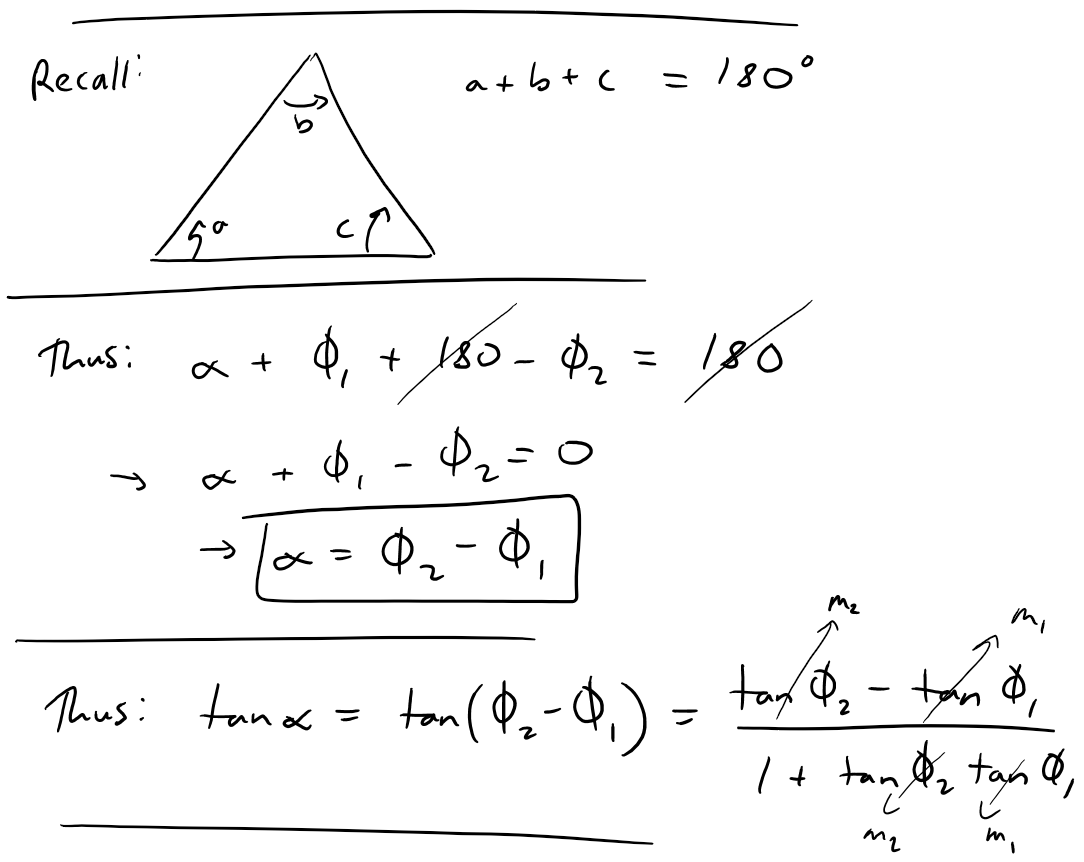 Recall: a + b + c = 180°
b
a c
Thus: α + ϕ₁ + 180 - ϕ₂ = 180
→ α + ϕ₁ - ϕ₂ = 0
→ α = ϕ₂ - ϕ₁
m₂ m₁
Thus: tan α = tan(ϕ₂ - ϕ₁) = (tan ϕ₂ - tan ϕ₁) / (1 + tan ϕ₂ tan ϕ₁)
m₂ m₁